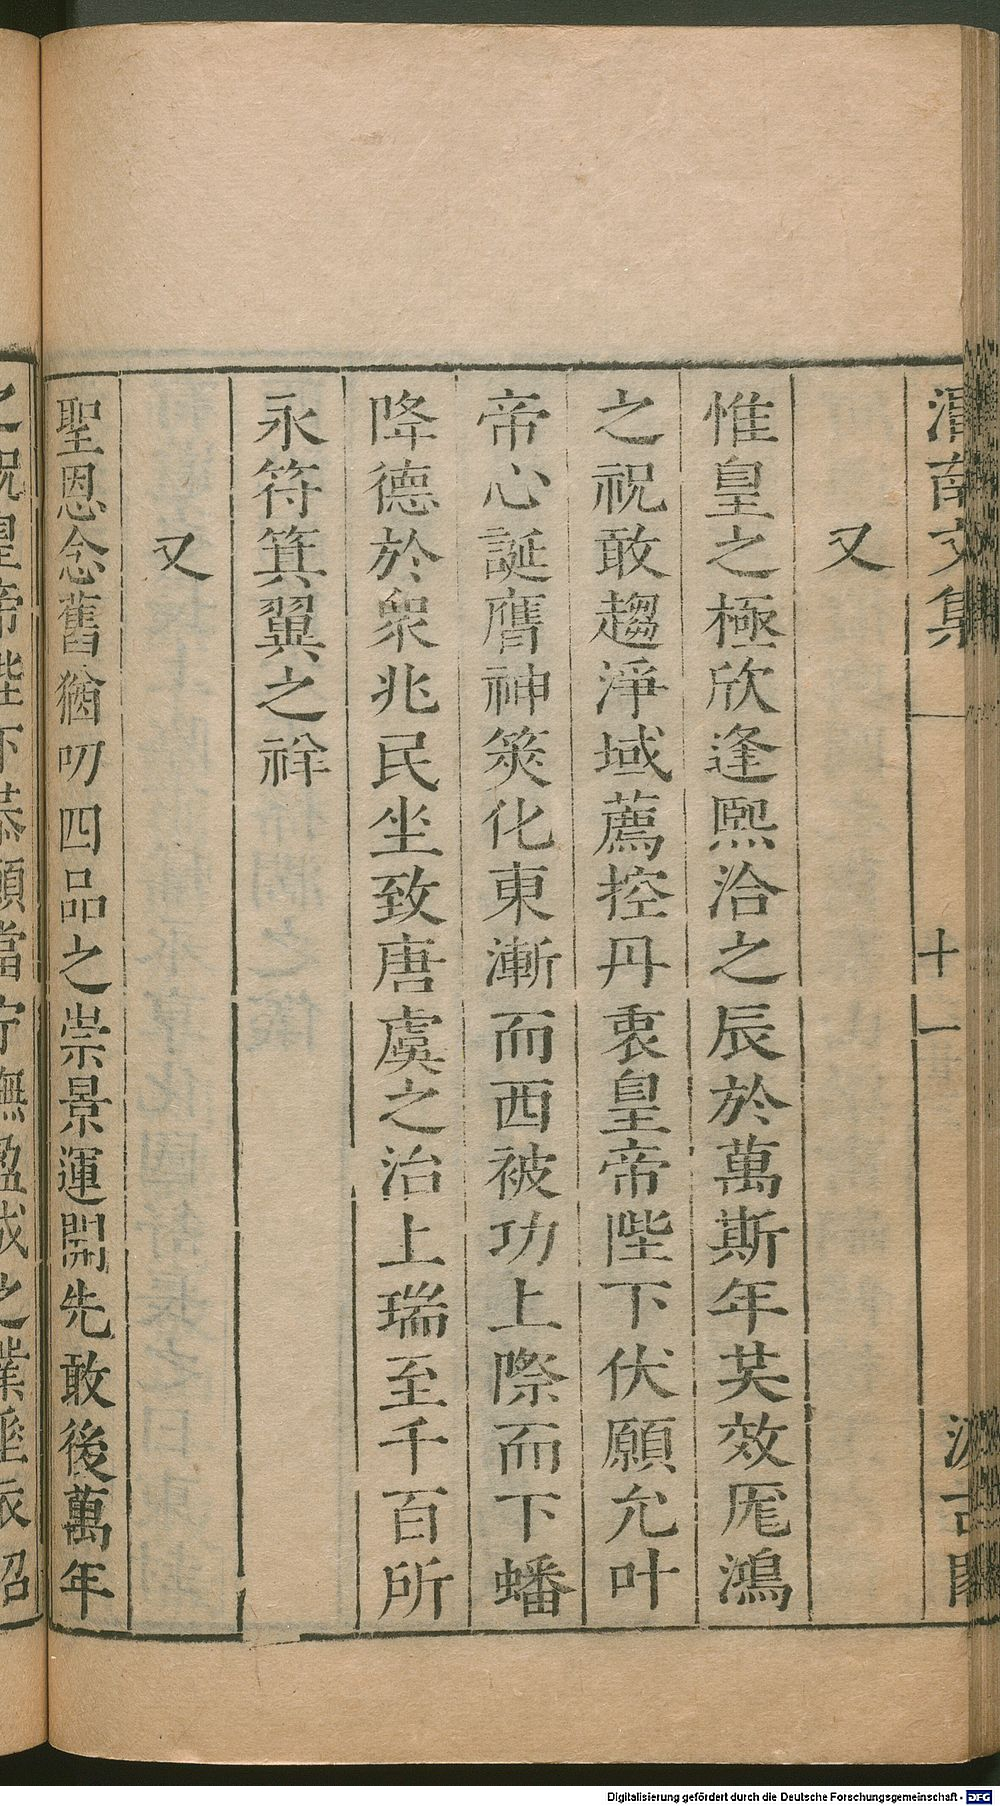 渭南文集
十一
汲古閣
又
惟皇之極欣逢熙洽之辰於萬斯年英效厖鴻
之祝敢趨淨域薦控丹衷皇帝陛下伏願允叶
帝心誕膺神筴化東漸而西被功上際而下蟠
降德於衆兆民坐致唐虞之治上瑞至千百所
永符箕翼之祥
又
聖恩念舊猶叨四品之崇景運開先敢後萬年
之祝皇帝陛下恭願當宁撫盈成之業垂衣紹
Digitalisierung gefördert durch die Deutsche Forschungsgemeinschaft - DFG